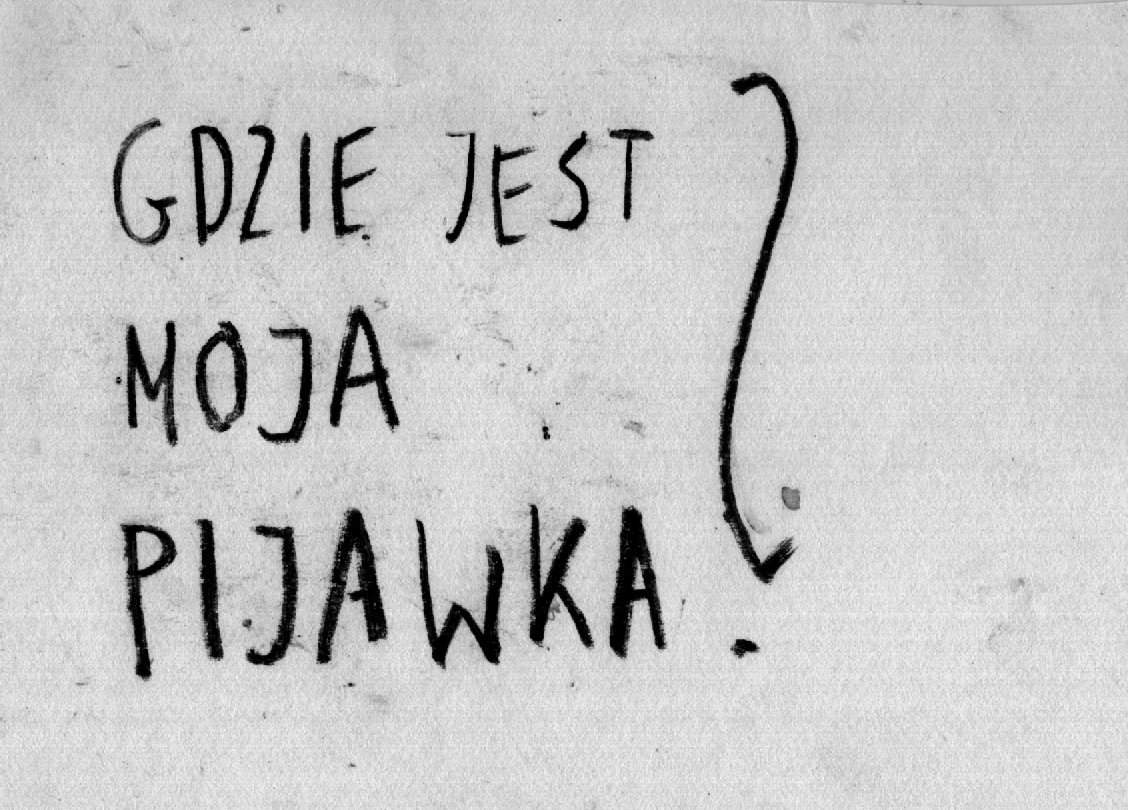 GDZIE JEST
MOJA
PIJAWKA?